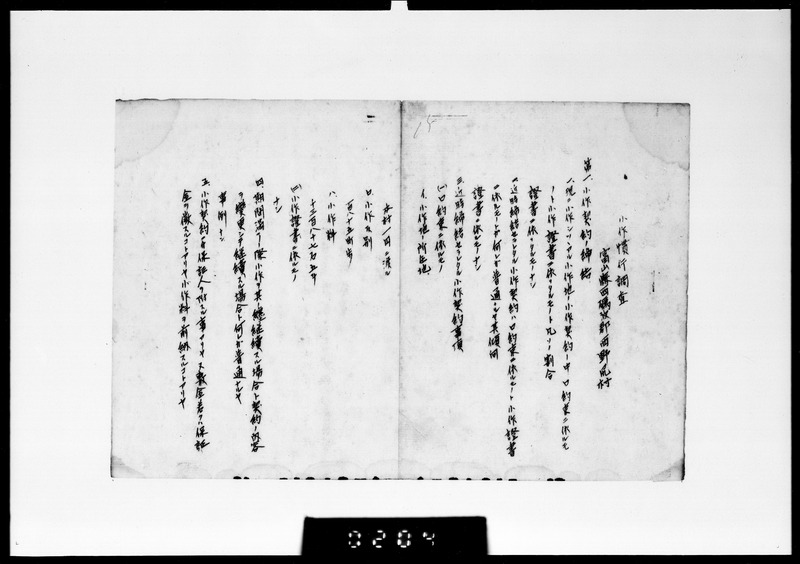 小作慣行調査
富山縣西礪波郡西野尻村
第一、小作契約ノ締結
一、現ニ小作シツヽアル小作地ノ小作契約ノ中口約束ニ依ルモ
ノト小作證書ニ依リタルモノト凡ソノ割合
證書ニ依リタルモノナシ
二、近時締結セラレタル小作契約ハ口約束ニ依ルモノト小作證書
ニ依ルモノト何レガ普通ナルヤ其傾向
證書ニ依ルモノナシ
三、近時締結セラレタル小作契約事項
(一)口約束ニ依ルモノ
イ、小作地ノ所在地
本村一円ニ渡ル
ロ、小作反別
ハ、小作料
(二)小作證書ニ依ルモノ
ナシ
四、期間満了ノ際小作ヲ其ノ儘継續スル場合ト契約ノ内容
ヲ變更シテ継續スル場合ト何レガ普通ナルヤ
事例ナシ
五、小作契約ニ保証人ヲ附スル事アリヤ又敷金若クハ保証
金ヲ徴スルコトアリヤ小作料ヲ前納スルコトアリヤ
0204